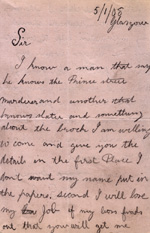 5/1/09
Glasgow
Sir
I know a man that says
he knows the Prince street
murderer and another that
knows Slater and something
about the broch I am willing
to come and give you the
details in the first Place I
dont want my name put in
the papers. Second I will lose
my Job if my own finds
out that you will get me